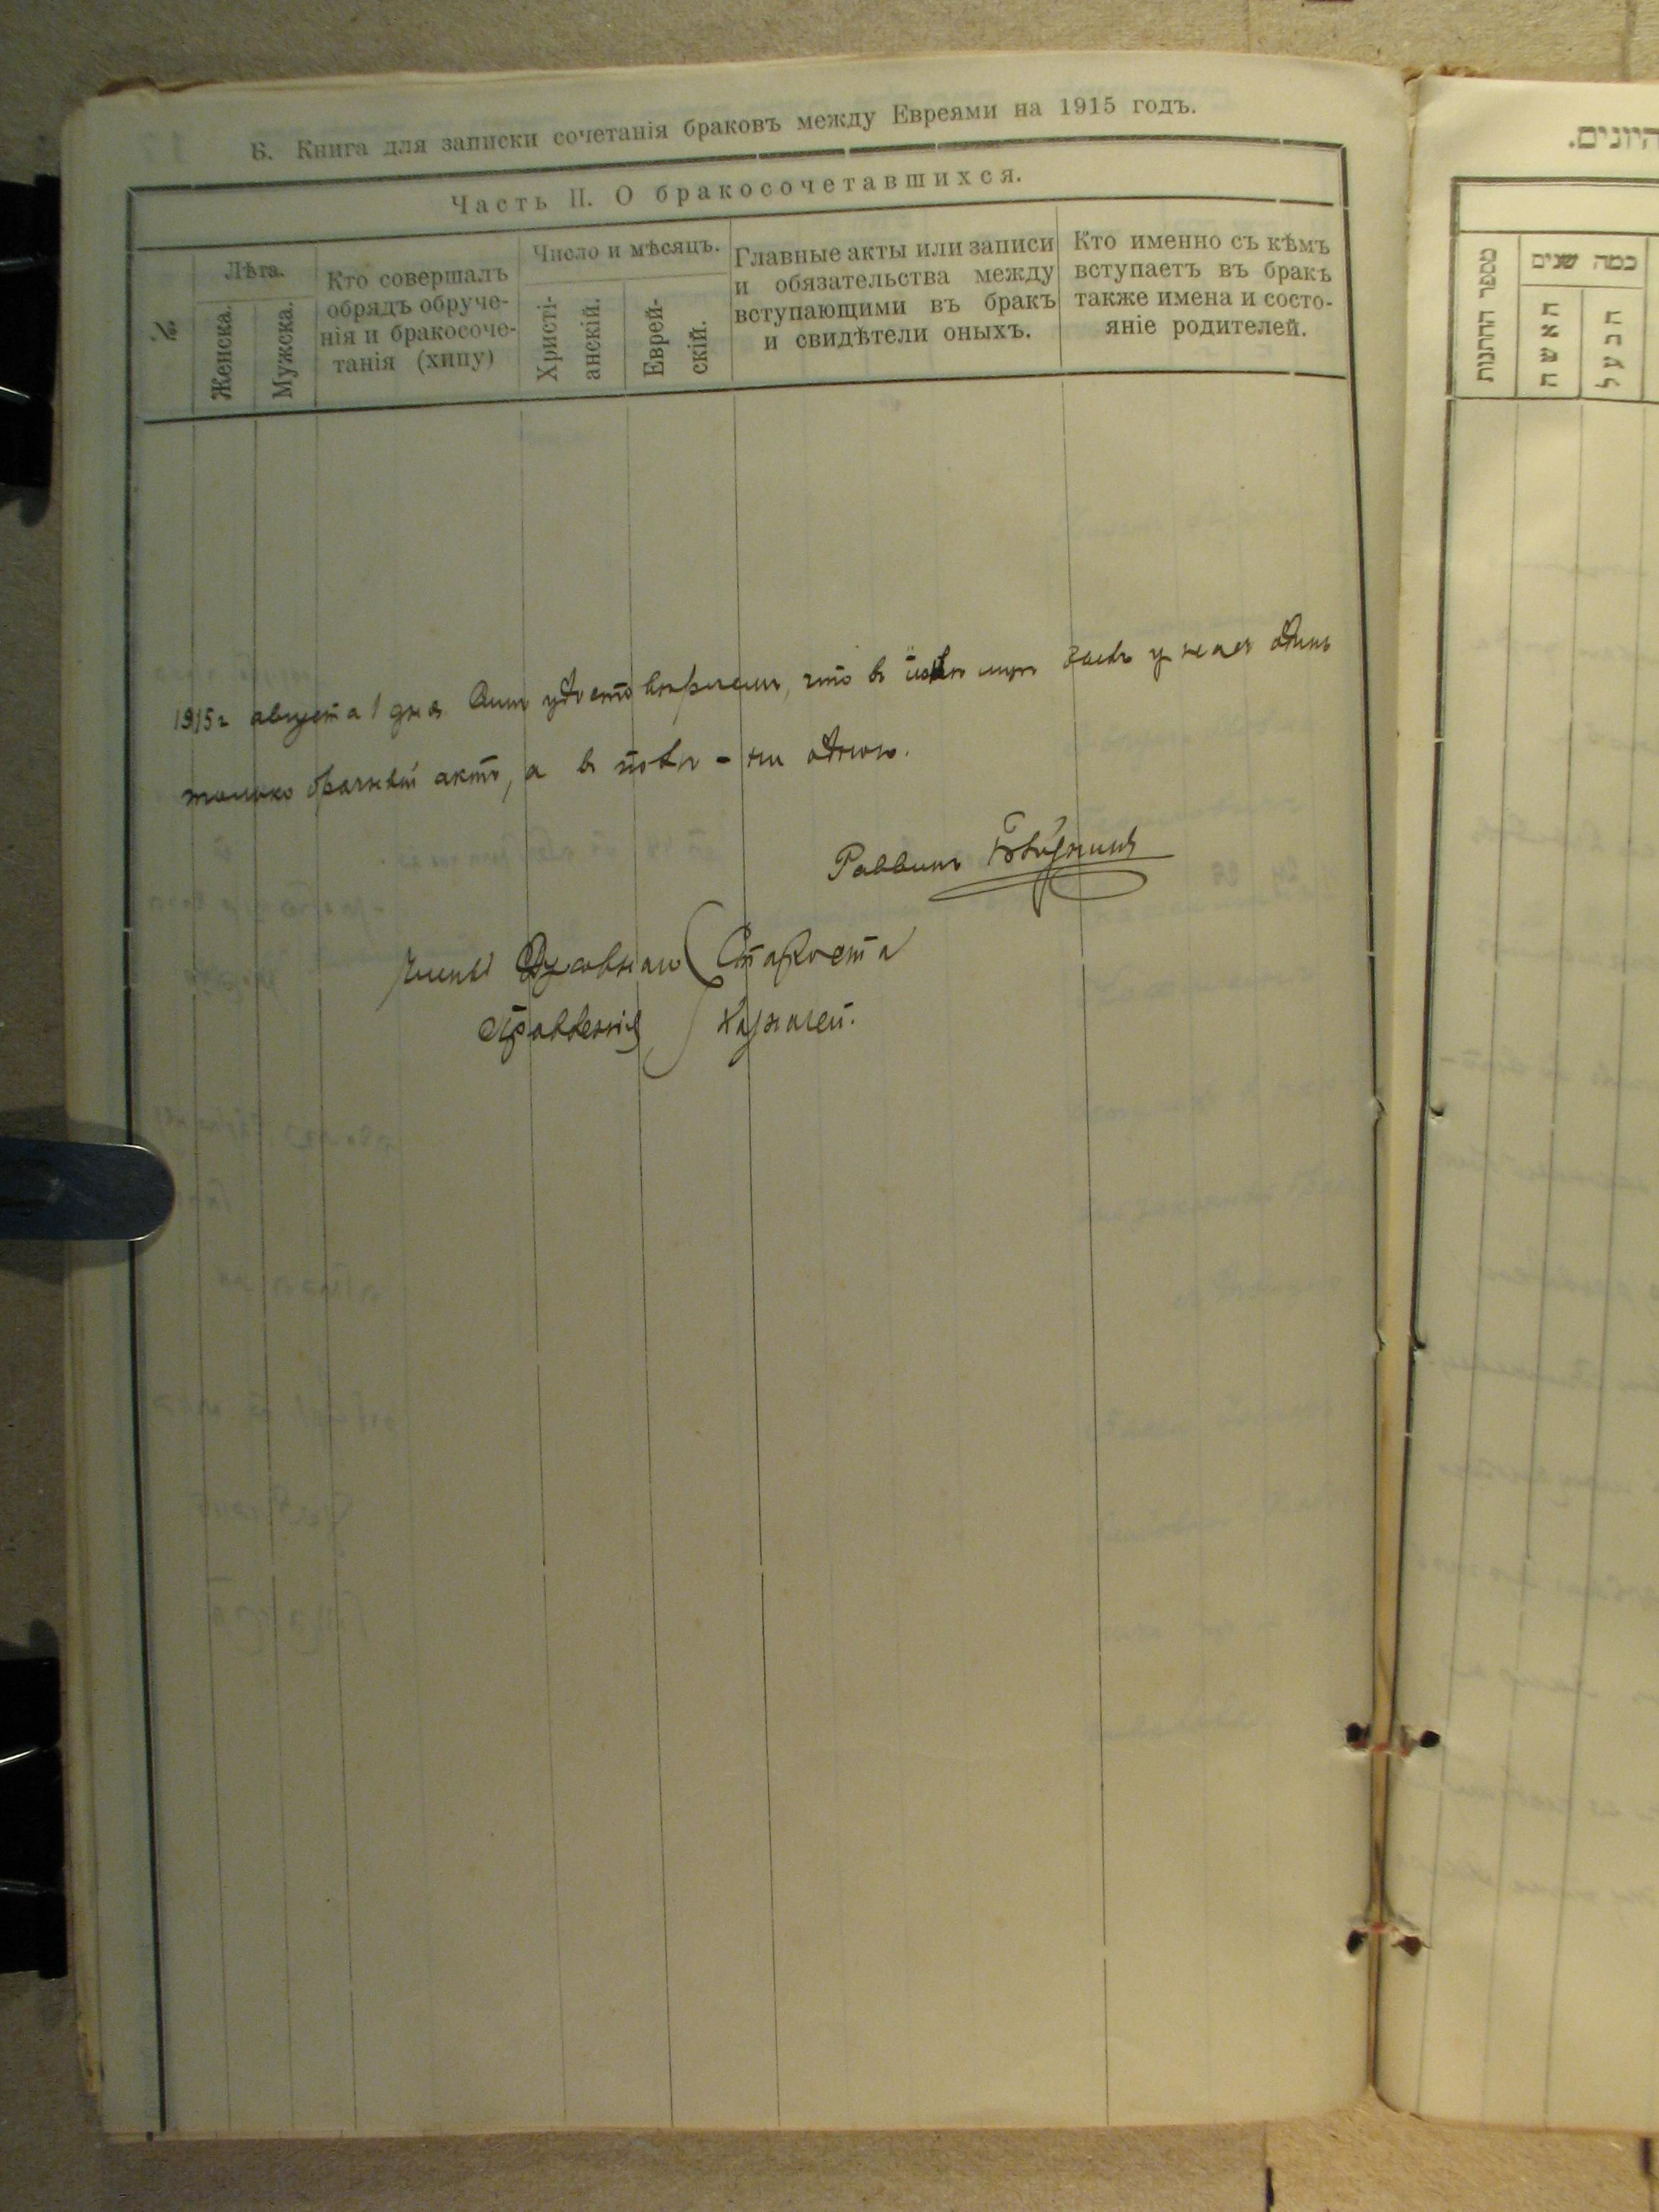 Б. Книга для записки сочетанія браковъ между Евреями на 1915 годъ.
Часть II. О бракосочетавшихся.
№.
Лѣта.
Женска.
Мужска.
Кто совершалъ
обрядъ обруче-
нія и бракосоче-
танія (хипу)
Число и мѣсяцъ.
Христі-
анскій.
Еврей-
скій.
Главные акты или записи
и обязательства между
вступающими въ бракъ
и свидѣтели оныхъ.
Кто именно съ кѣмъ
вступаетъ въ бракъ
также имена и состо-
яніе родителей.
1915 г августа 1 дня Симъ удостовѣряемъ, что въ мцѣ былъ у насъ одинъ
только брачный актъ, а въ – ни одного.
Раввинъ
Члены Духовнаго Староста
Правленія Казначей.
היונים.
מספר החתנות
כמה שנים
האשה
הבעל